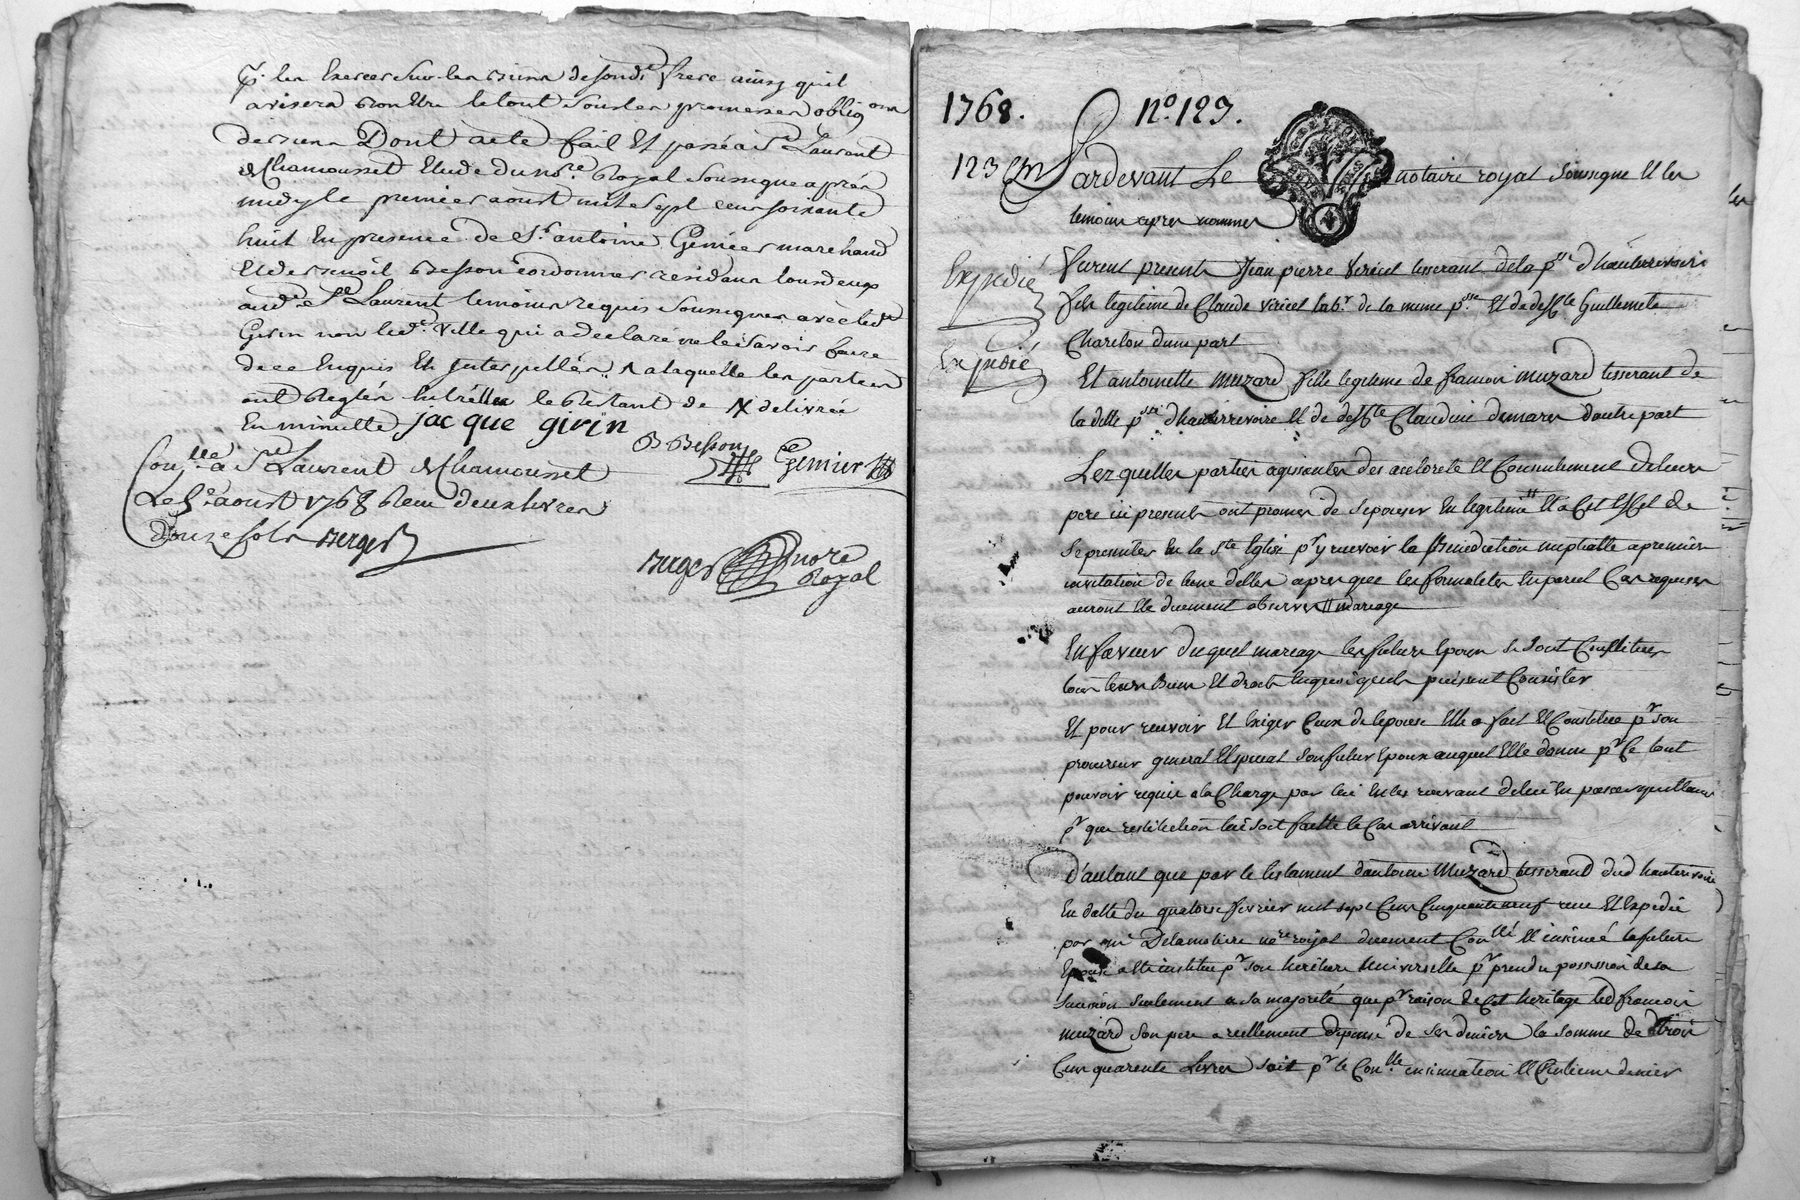 les Exercer sur les biens de sond. frere ainsy quil
avisera bon Etre le tout sous les promesses oblig.ons
de biens Dont acte fait Et passé a St Laurent
de Chamousset Etude du no.re Royal soussigne apres
midy le premier aoust mil sept cens soixante
huit En presence de Sr. antoine Genier marchand
Et de benoit Besson cordonnier residans tous deux
aud. St Laurent temoins requis soussignes avec led.
Girin non lad. ville qui a declaré ne le savoir faire
de ce Enquis Et Interpellés a laquelle les parties
ont Reglés le Restant de delivrée
En minutte jacque girin
B Besson Genier
Con.llé a St Laurent de Chamousset
Le aoust 1768 Reçu deux livres
douze sols Berger
Berger no.re Royal
1768. No. 123.
123
Pardevant Le notaire royal soussigne Et les
temoins apres nommes
Expédié
Furent presents Jean pierre Vericel tisserant de la p.sse d'hauterrivoire
fils legitime de Claude Vericel lab.r de la meme p.sse Et de deff.te Guillemette
Charelon d'une part
Expedié
Et antoinette Muzard fille legitime de francois muzard tisserant de
la ditte p.sse d'hauterrivoire Et de deff.te Claudine demares d'autre part
Lezquelles parties agissantes des authorité Et Consentement de leurs
pere ici presents ont promis de s'epouser En legitime Et a cet effet de
se presenter En la Ste Eglise p.r y recevoir la Benediction nuptialle a premiere
invitation de l'une d'elles apres que les formalités En pareil Cas requises
auront Eté duement observes mariage
En faveur duquel mariage les futurs Epoux se sont Constitues
tous leurs Biens Et droits En quoi qu'ils puissent Consister
Et pour recevoir Et Exiger Ceux de l'epouse Elle a fait Et Constitue p.r son
procureur general Et special son futur Epoux auquel Elle donne p.r Ce tout
pouvoir requis a la Charge par lui En les recevant de lui En passer quittance
p.r que restitution lui soit faitte le Cas arrivant
D'autant que par le testament d'antoine Muzard tisserand dud hauterivoire
En datte du quatorze fevrier mil sept Cens Cinquante neuf recu Et Expedié
par me Delamotiere no.re royal duement Con.llé Et insinué la future
Epouse a Eté instituee p.r son heritiere Universelle p.r prendre possession de sa
succession seulement a sa majorité que p.r raison de Cet heritage led francois
muzard son pere a reellement depensé de ses deniers la somme de trois
Cens quarente Livres soit p.r le Con.lle insinuation Et Centieme denier